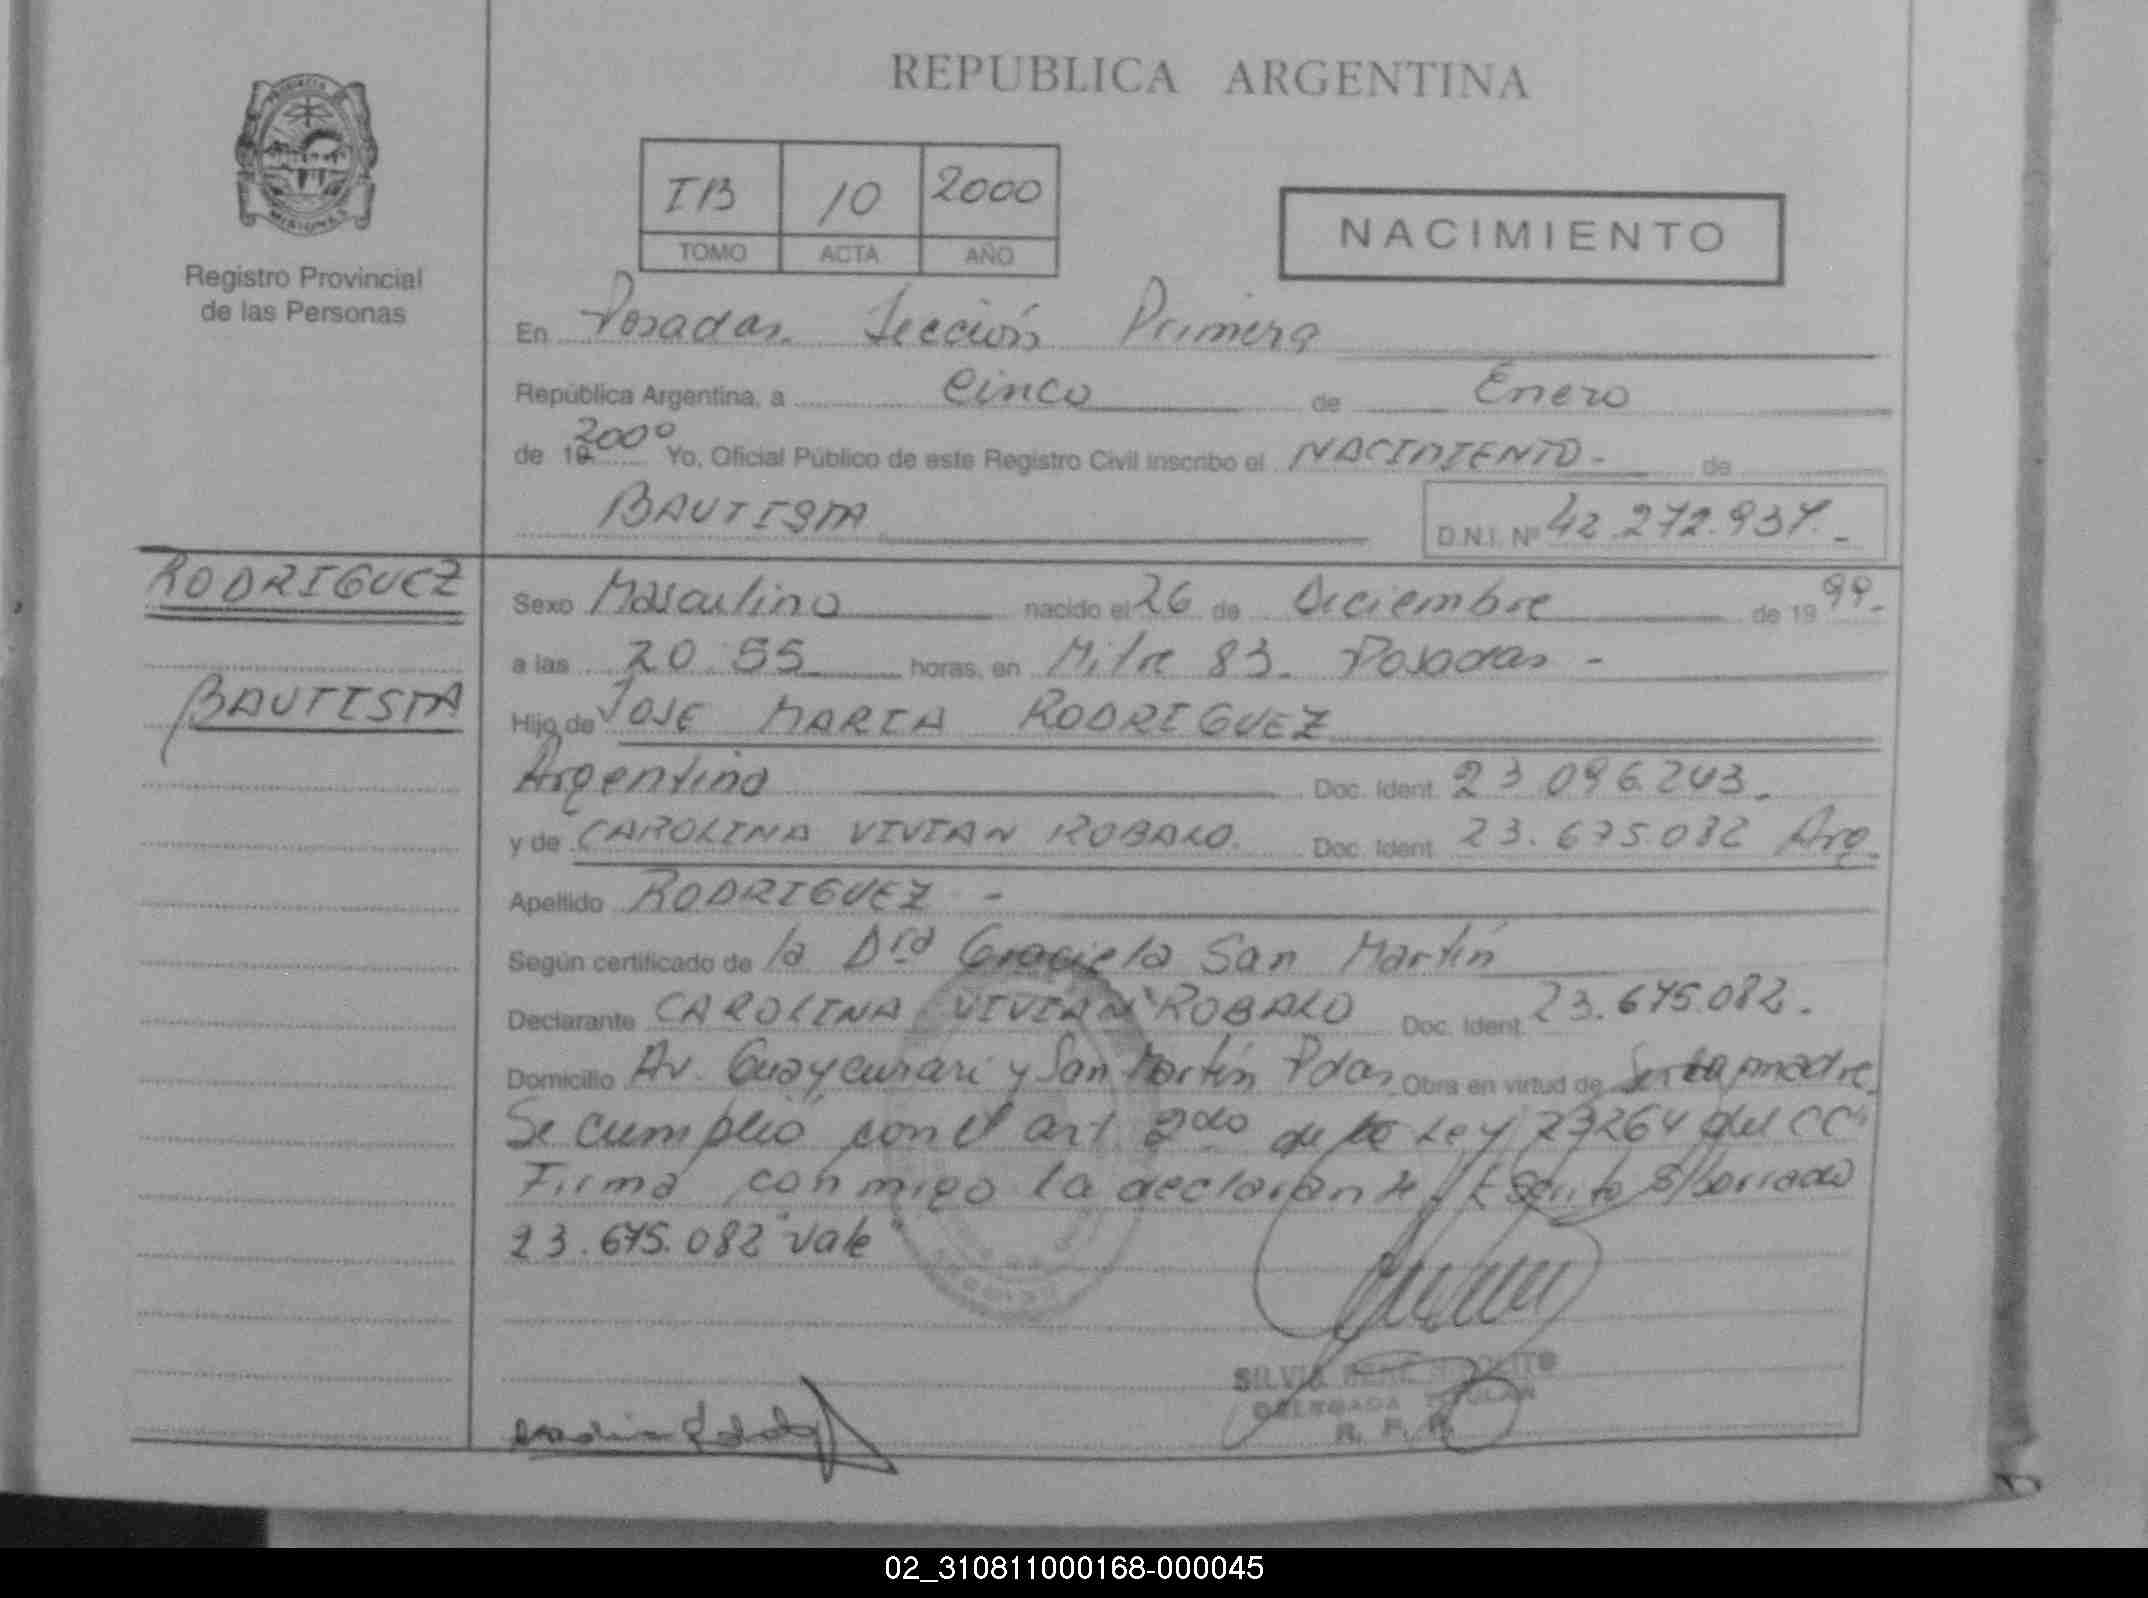 REPUBLICA ARGENTINA
IB 10 2000
TOMO ACTA AÑO
NACIMIENTO
Registro Provincial
de las Personas
En Posadas. Sección Primera
República Argentina, a Cinco de Enero
de 19 2000 Yo, Oficial Público de este Registro Civil inscribo el NACIMIENTO - de
BAUTISTA D.N.I. Nº 42.272.937.-
RODRIGUEZ
BAUTISTA
Sexo Masculino nacido el 26 de Diciembre de 19 99.-
a las 20.55 horas, en Mitre 83. Posadas -
Hijo de JOSE MARIA RODRIGUEZ
Argentino Doc. Ident. 23.096.243.
y de CAROLINA VIVIAN ROBALO. Doc. Ident. 23.675.082 Arg.
Apellido RODRIGUEZ -
Según certificado de la Dra Graciela San Martín
Declarante CAROLINA VIVIAN ROBALO Doc. Ident. 23.675.082.
Domicilio Av. Guaycurari y San Martín Pdas. Obra en virtud de Ser la madre.
Se cumplió con el art. 2do de la Ley 23264 del CC.
Firma conmigo la declarante. Escrito s/borrado
23.675.082 "Vale"
SILVIA
DELEGADA TITULAR
R. P. P.
02_310811000168-000045